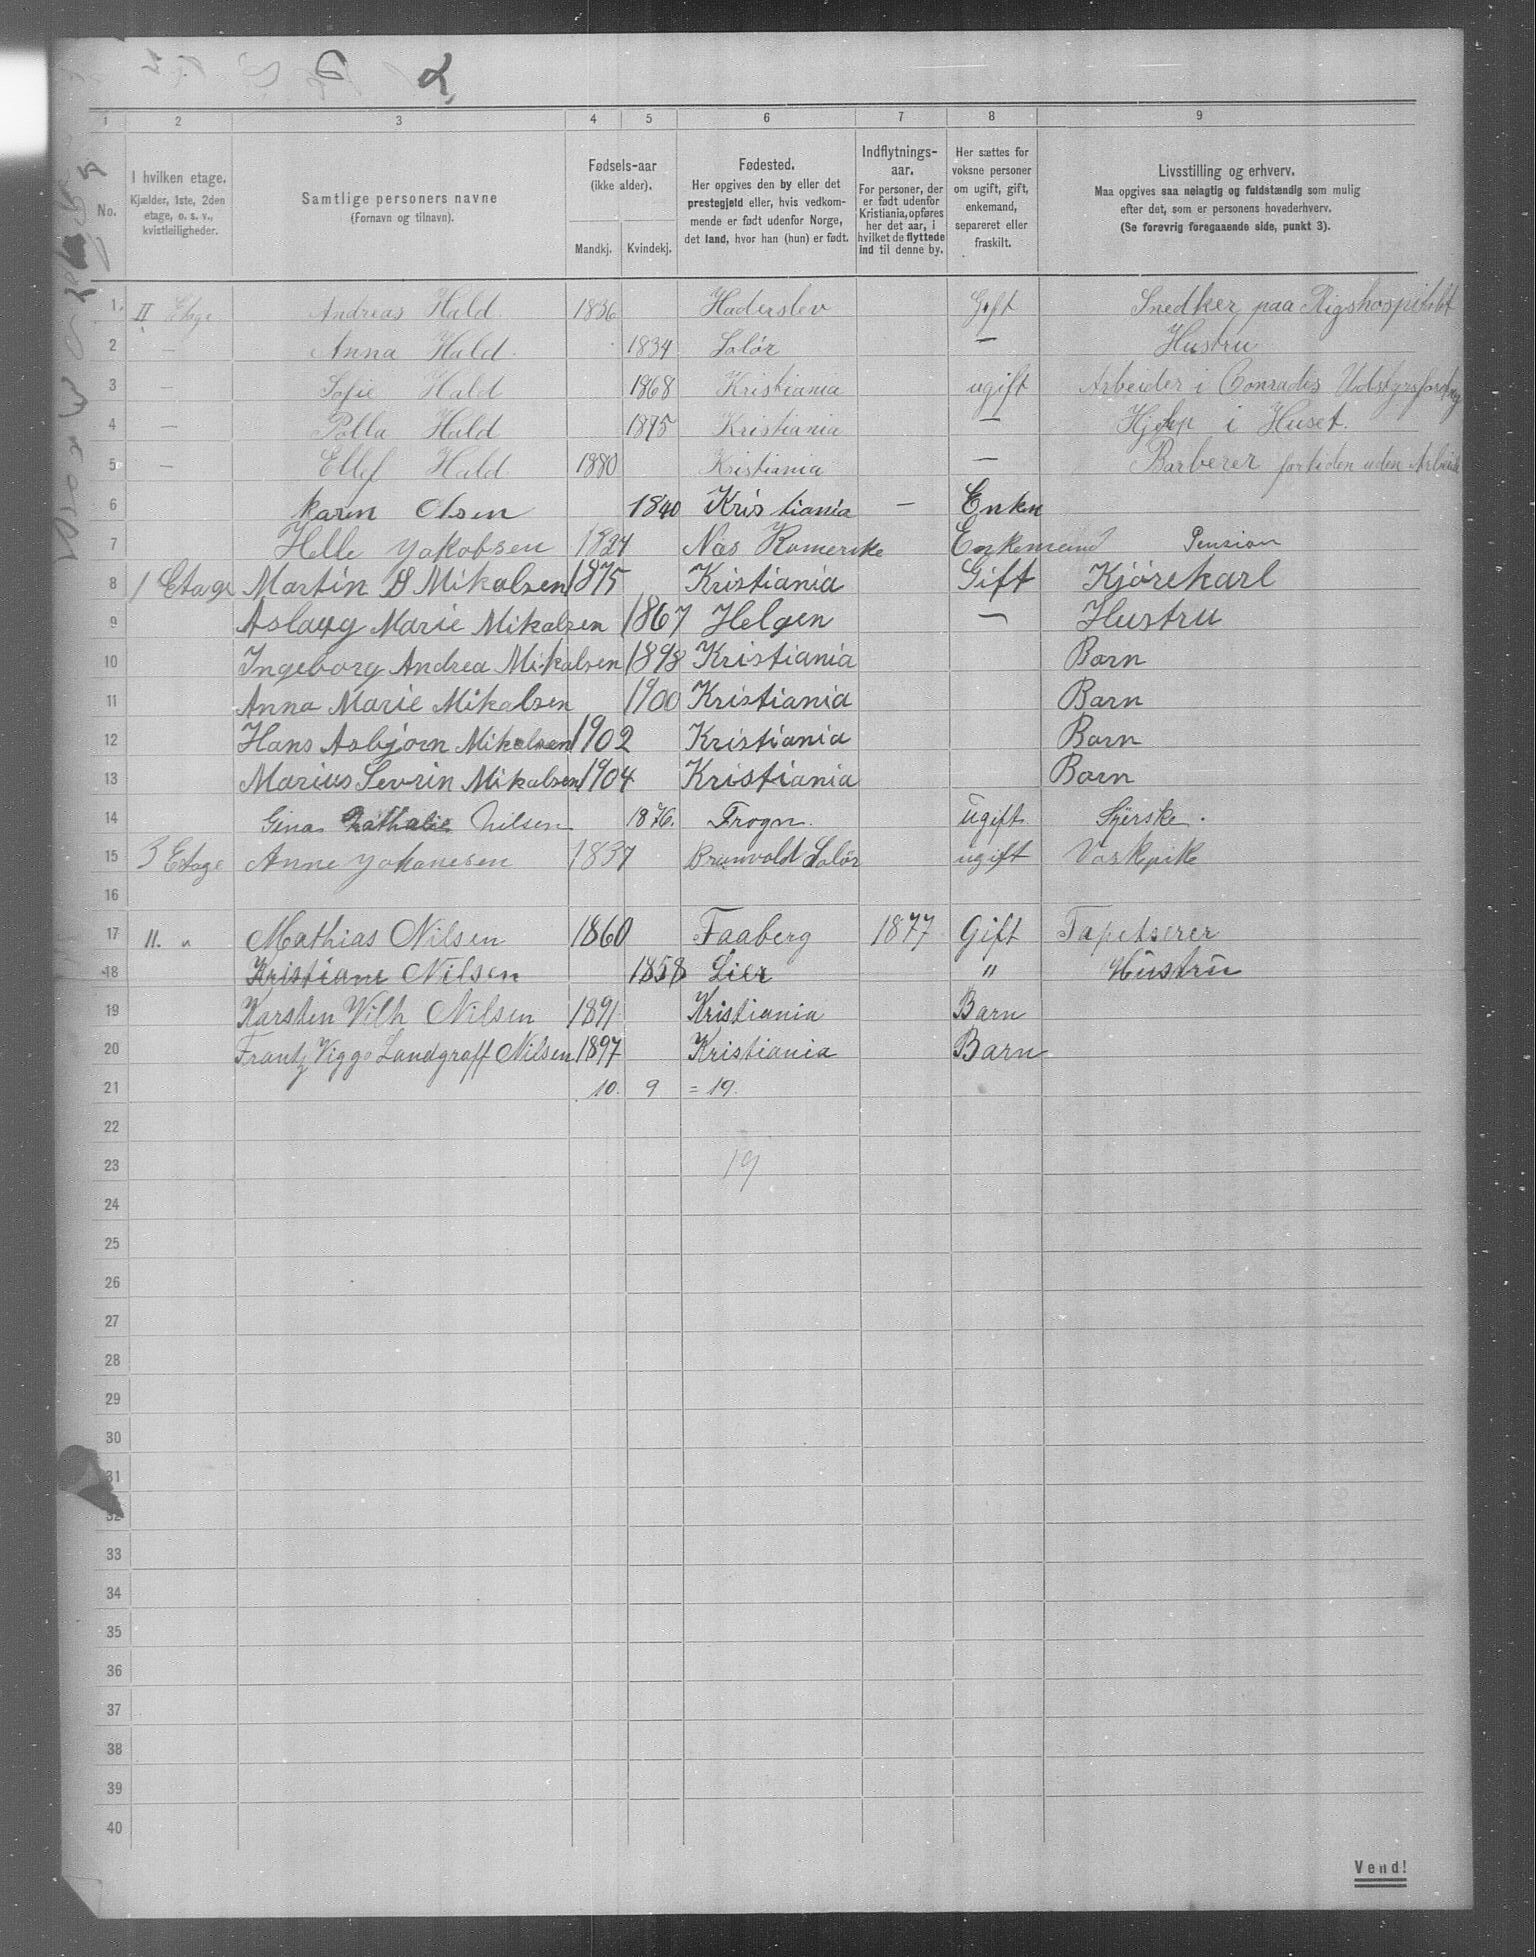 1 2 3 4 5 6 7 8 9
No.
I hvilken etage.
Kjælder, 1ste, 2den
etage, o. s. v.,
kvistleiligheder.
Samtlige personers navne
(Fornavn og tilnavn).
Fødsels-aar
(ikke alder).
Mandkj. Kvindekj.
Fødested.
Her opgives den by eller det
prestegjeld eller, hvis vedkom-
mende er født udenfor Norge,
det land, hvor han (hun) er født.
Indflytnings-
aar.
For personer, der
er født udenfor
Kristiania, opføres
her det aar, i
hvilket de flyttede
ind til denne by.
Her sættes for
voksne personer
om ugift, gift,
enkemand,
separeret eller
fraskilt.
Livsstilling og erhverv.
Maa opgives saa nøiagtig og fuldstændig som mulig
efter det, som er personens hovederhverv.
(Se forøvrig foregaaende side, punkt 3).
1. II Etage Andreas Hald 1836 Haderslev Gift Snedker paa Rigshospitalet
2 — Anna Hald. 1834 Solør — Hustru
3 — Sofie Hald 1868 Kristiania ugift Arbeider i Conradis
4 — Polla Hald 1875 Kristiania — Hjelp i Huset.
5 — Ellef Hald 1880 Kristiania — Barberer fortiden uden Arbeide
6 Karen Olsen 1840 Kristiania — Enke
7 Helle Jakobsen 1824 Nas Romerike Enkemand Pension
8 1 Etage Martin Mikalsen 1875 Kristiania Gift Kjørekarl
9 Aslaug Marie Mikalsen 1867 Helgen — Hustru
10 Ingeborg Andrea Mikalsen 1898 Kristiania Barn
11 Anna Marie Mikalsen 1900 Kristiania Barn
12 Hans Asbjørn Mikalsen 1902 Kristiania Barn
13 Marius Sevrin Mikalsen 1904 Kristiania Barn
14 Gina Nathalie Nilsen 1876. Frogn. ugift Syerske.
15 3 Etage Anne Johanesen 1837 Branvold Solør ugift Vaskepike
16
17 II. " Mathias Nilsen 1860 Faaberg 1877 Gift Tapetserer
18 Kristiane Nilsen 1858 Lier " Hustru
19 Karsten Wilh Nilsen 1891 Kristiania Barn
20 Frantz Viggo Landgraff Nilsen 1897 Kristiania Barn
21 10. 9 = 19.
22
23 19
24
25
26
27
28
29
30
31
32
33
34
35
36
37
38
39
40
Vend!